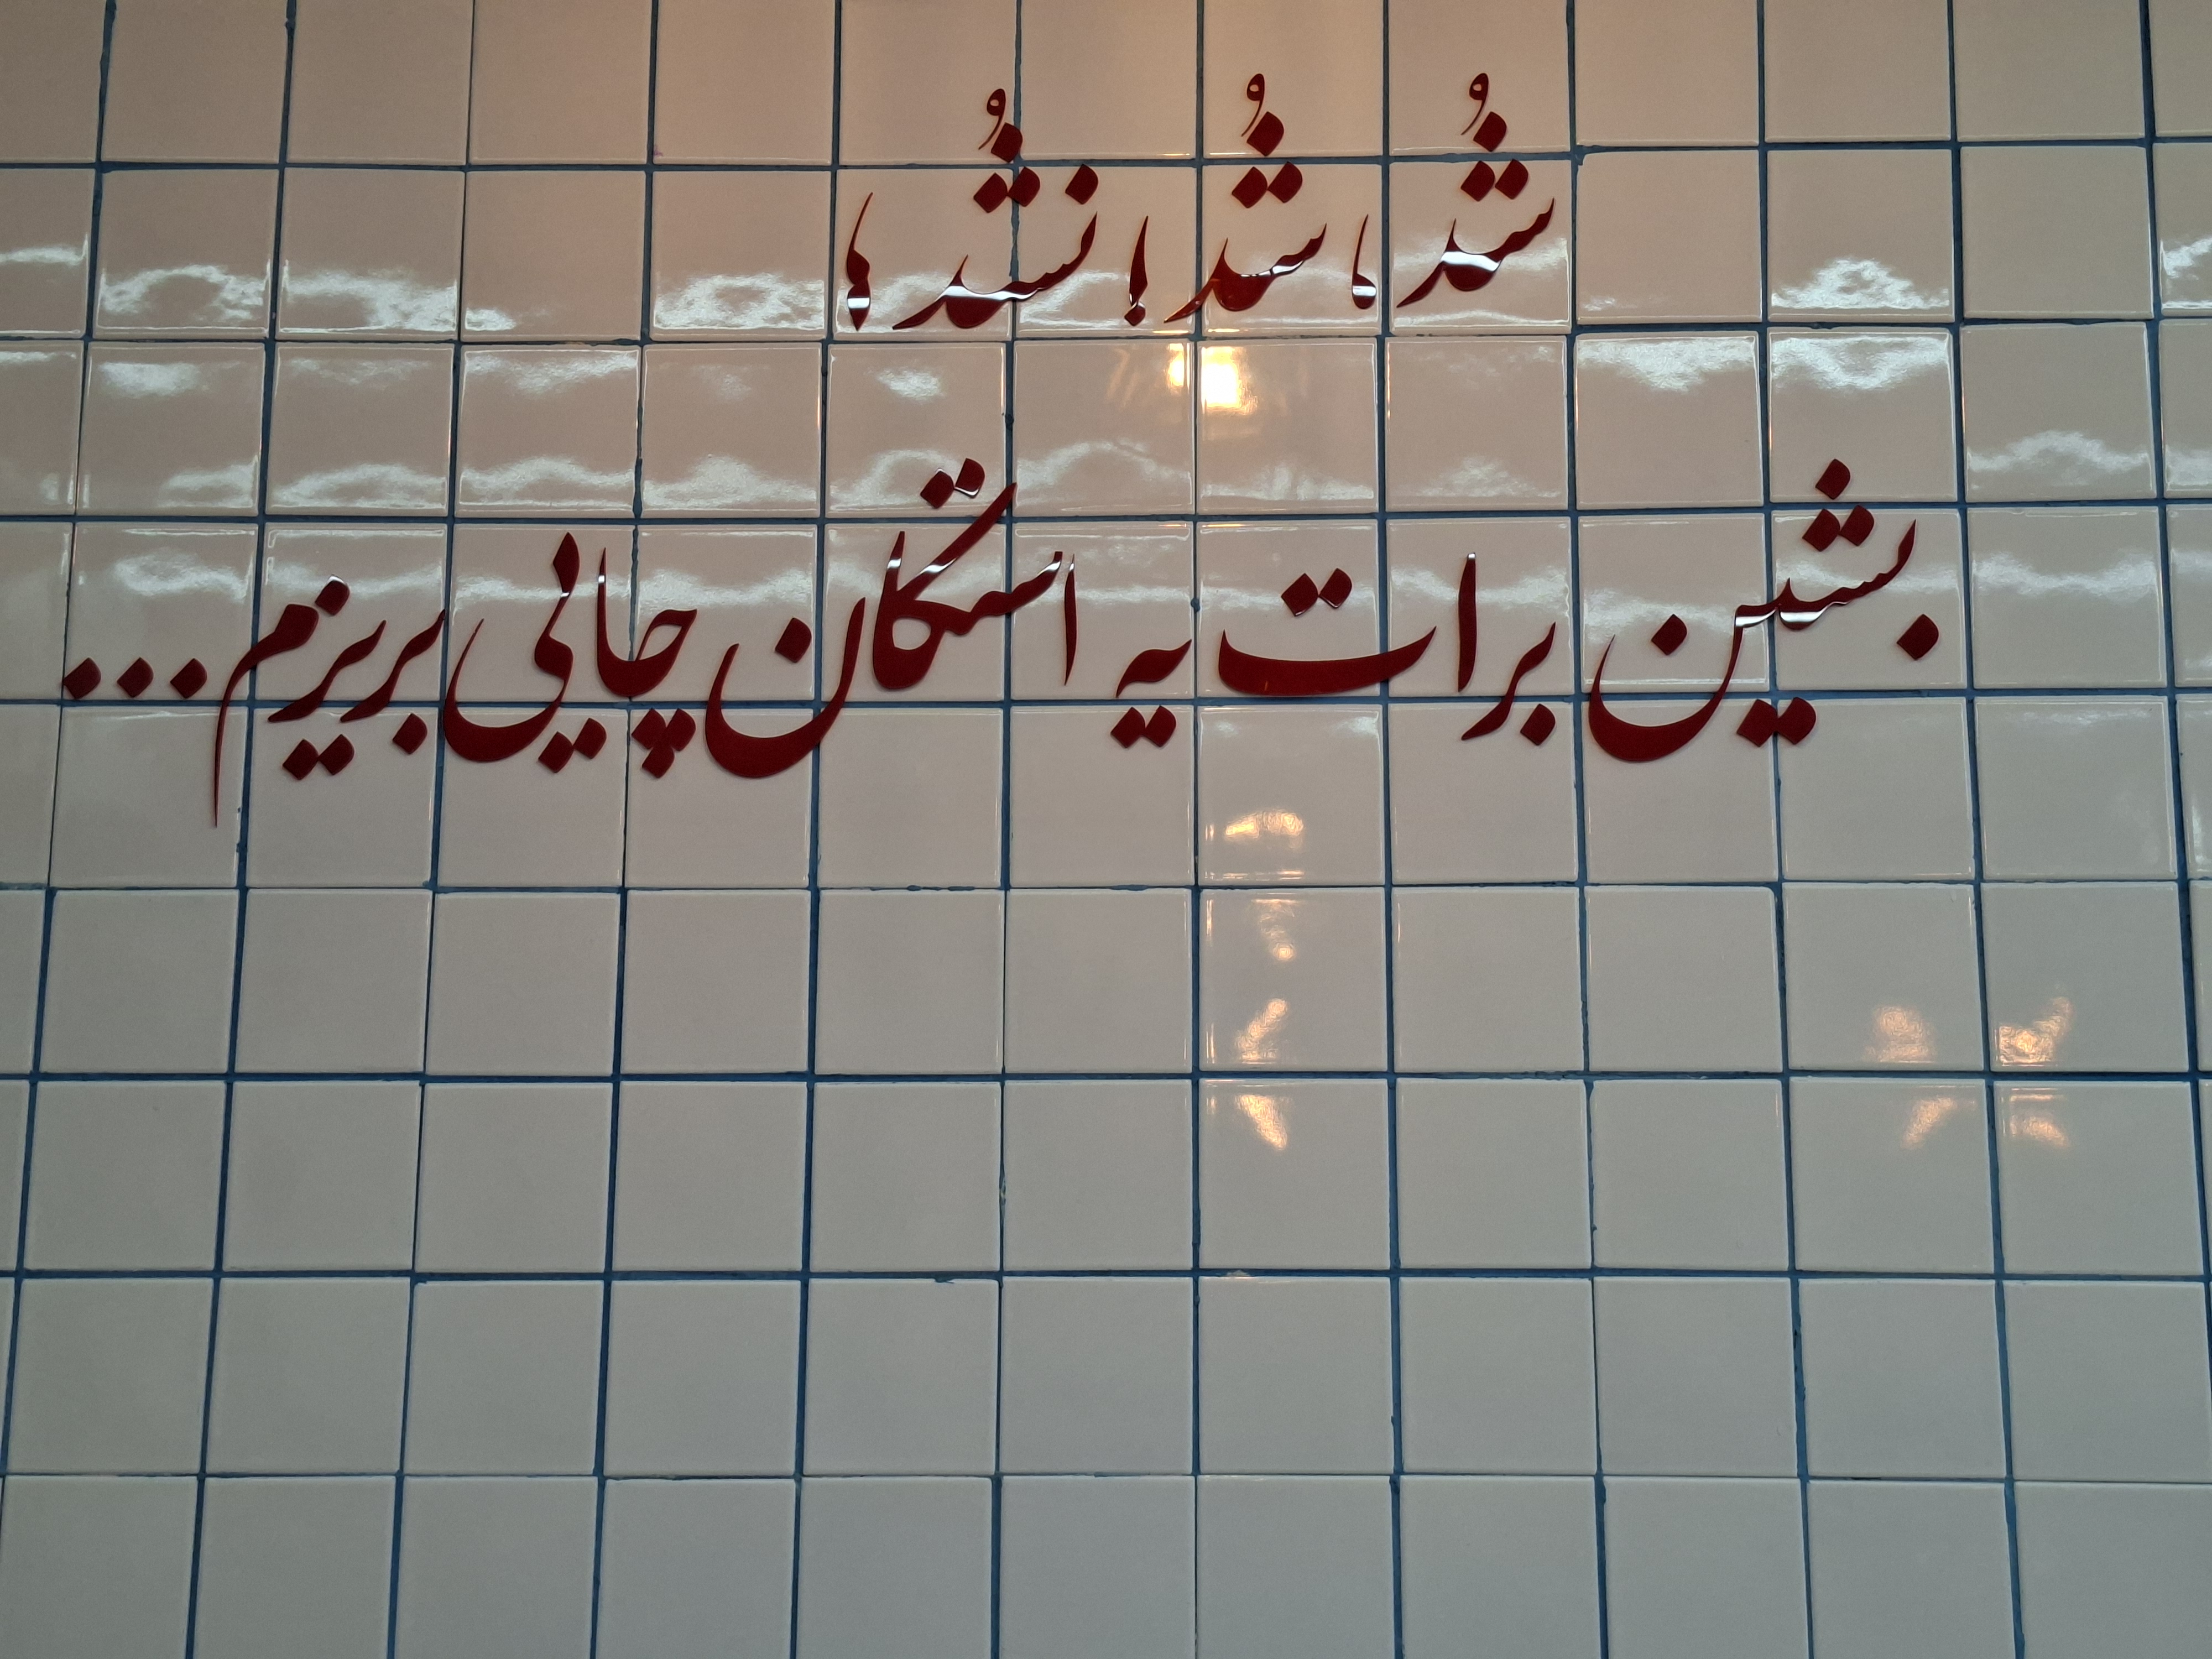 شُد، شُد! نشُد
بشین برات یه استکان چایی بریزم...